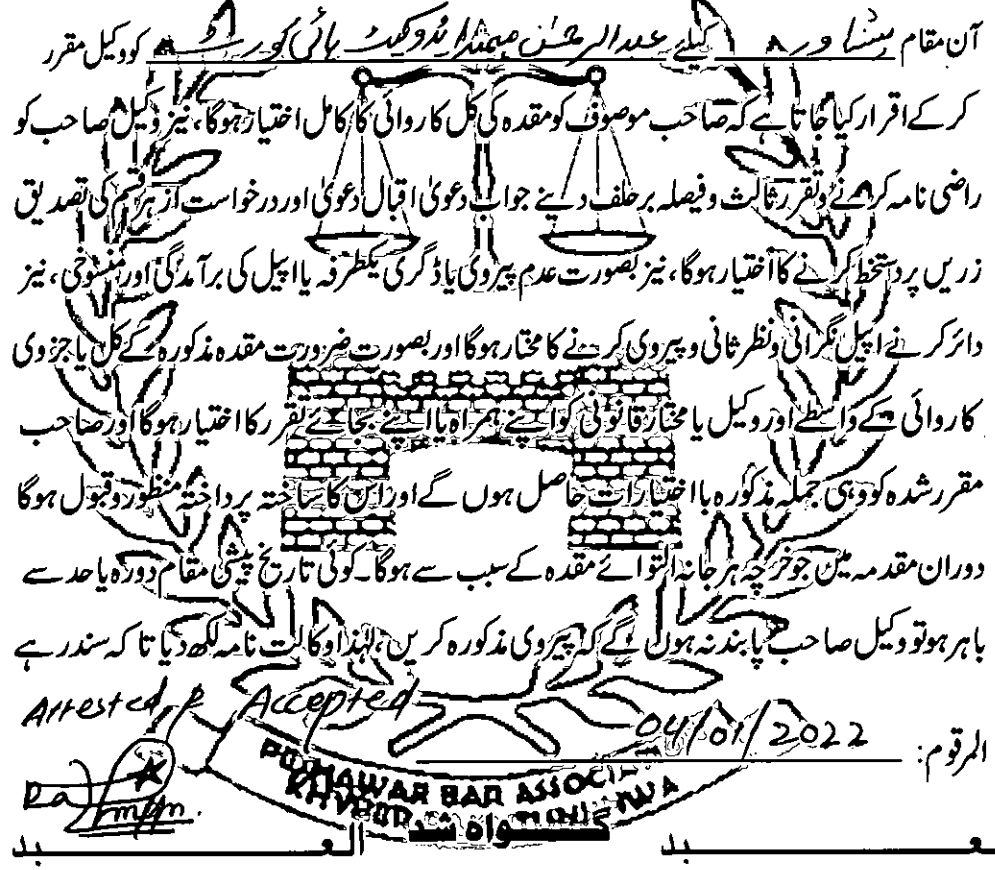 آن مقام پشاور کیلئے عبدالرحمٰن مہمند ایڈوکیٹ ہائی کورٹ کو وکیل مقرر
کر کے اقرار کیا جاتا ہے کہ صاحب موصوف کو مقدہ کی کل کاروائی کا کامل اختیار ہوگا، نیز وکیل صاحب کو
راضی نامہ کرنے وتقرر ثالث و فیصلہ بر حلف دینے جواب دعویٰ اقبال دعویٰ اور درخواست از ہر قسم کی تصدیق
زریں پر دستخط کرنے کا اختیار ہوگا، نیز بصورت عدم پیروی یا ڈگری یکطرفہ یا اپیل کی برآمدگی اور منسوخی، نیز
دائر کرنے اپیل نگرانی ونظر ثانی و پیروی کرنے کا مختار ہوگا اور بصورت ضرورت مقدہ مذکورہ کے کل یا جزوی
کاروائی کے واسطے اور وکیل یا مختار قانونی کو اپنے ہمراہ یا اپنے بجائے تقرر کا اختیار ہوگا اور صاحب
مقرر شدہ کو وہی جملہ مذکورہ با اختیارات حاصل ہوں گے اور اس کا ساختہ پرداختہ منظور و قبول ہوگا
دوران مقدمہ میں جو خرچہ ہرجانہ التوائے مقدہ کے سبب سے ہوگا۔ کوئی تاریخ پیشی مقام دورہ یا حد سے
باہر ہو تو وکیل صاحب پابند نہ ہوں گے کہ پیروی مذکورہ کریں، لہٰذا وکالت نامہ لکھ دیا تا کہ سند رہے
Attested & Accepted
المرقوم: 04/01/2022
PESHAWAR BAR ASSOCIATION
KHYBER
گواہ شد
العبد